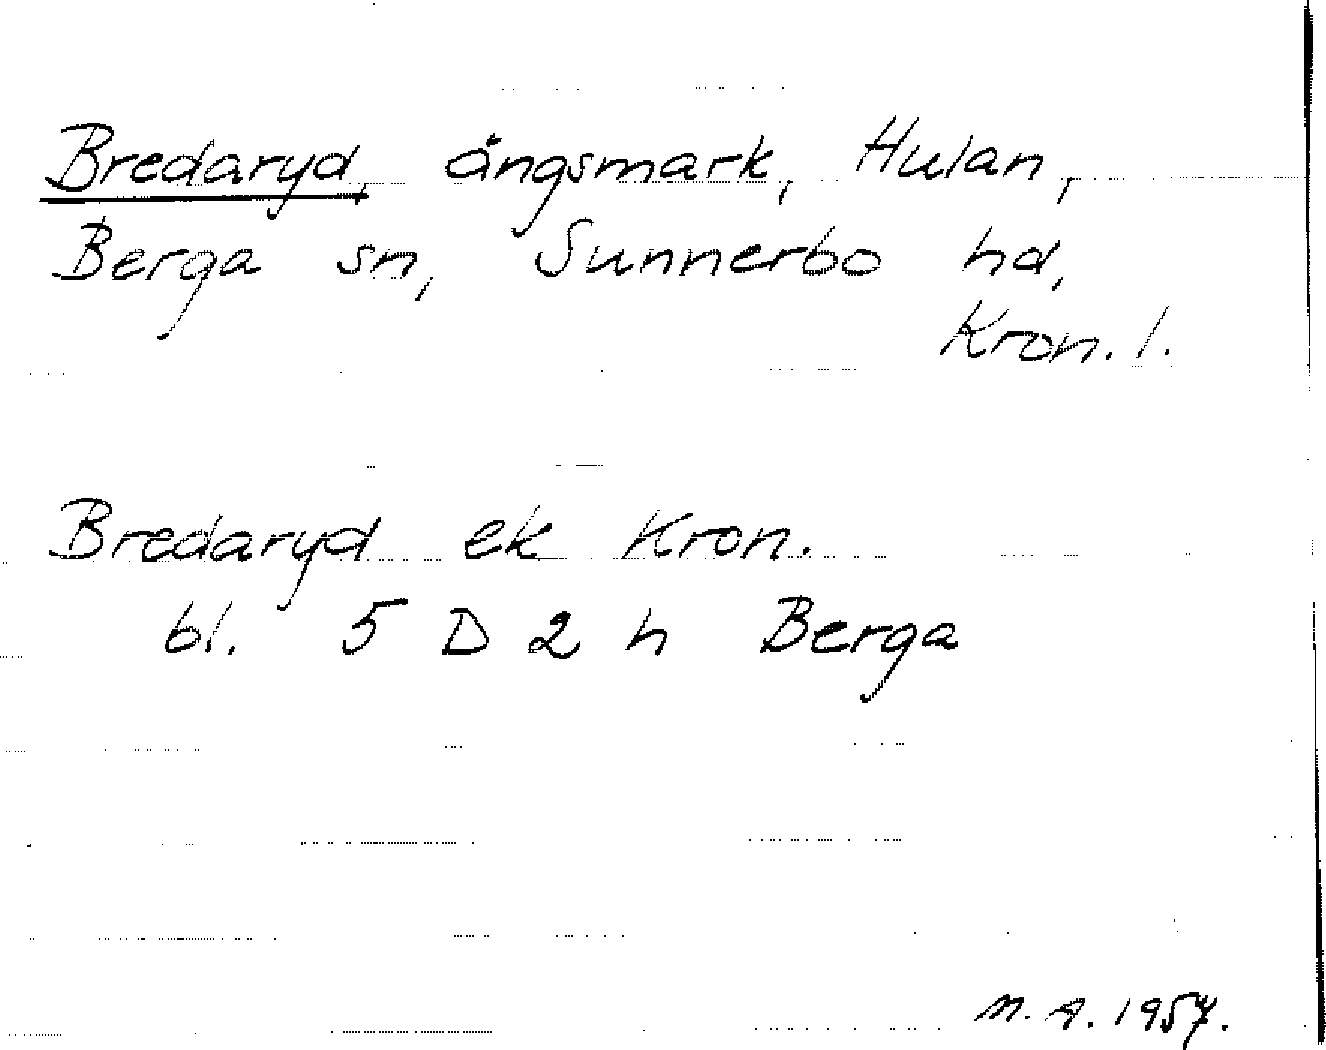 Bredaryd, ängsmark, Hulan,
Berga sn, Sunnerbo hd,
Kron. l.
Bredaryd ek Kron.
bl. 5 D 2 h Berga
M. A. 1957.